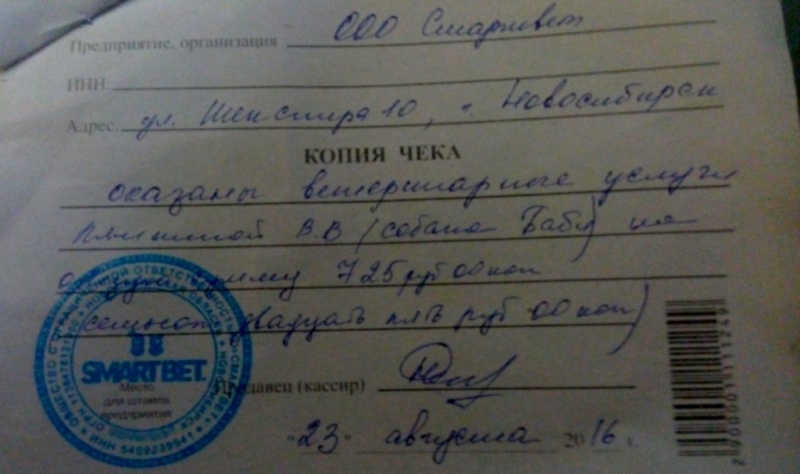 Предприятие, организация ООО Смартвет
ИНН:
Адрес: ул. 10, г. Новосибирск
КОПИЯ ЧЕКА
оказаны ветеринарные услуги
В.В (собака ) на
сумму 725 руб 00 коп
семьсот двадцать пять руб 00 коп)
SMARTBET
Место
для штампа
предприятия
Продавец (кассир)
"23" августа 2016 г.